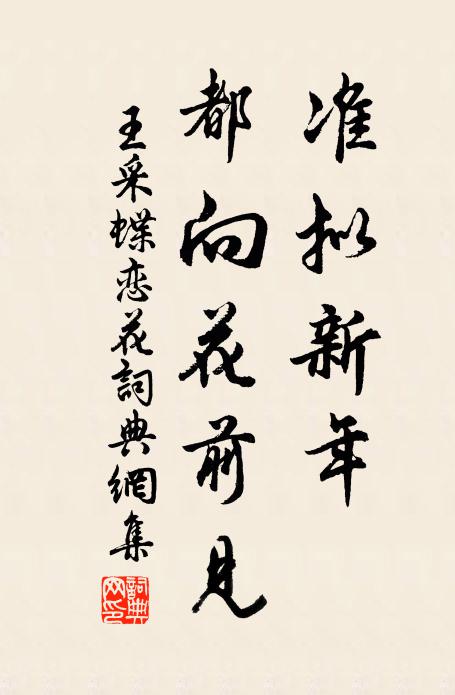 准拟新年
都向花前见
王采蝶恋花詞典網集
詞典網印